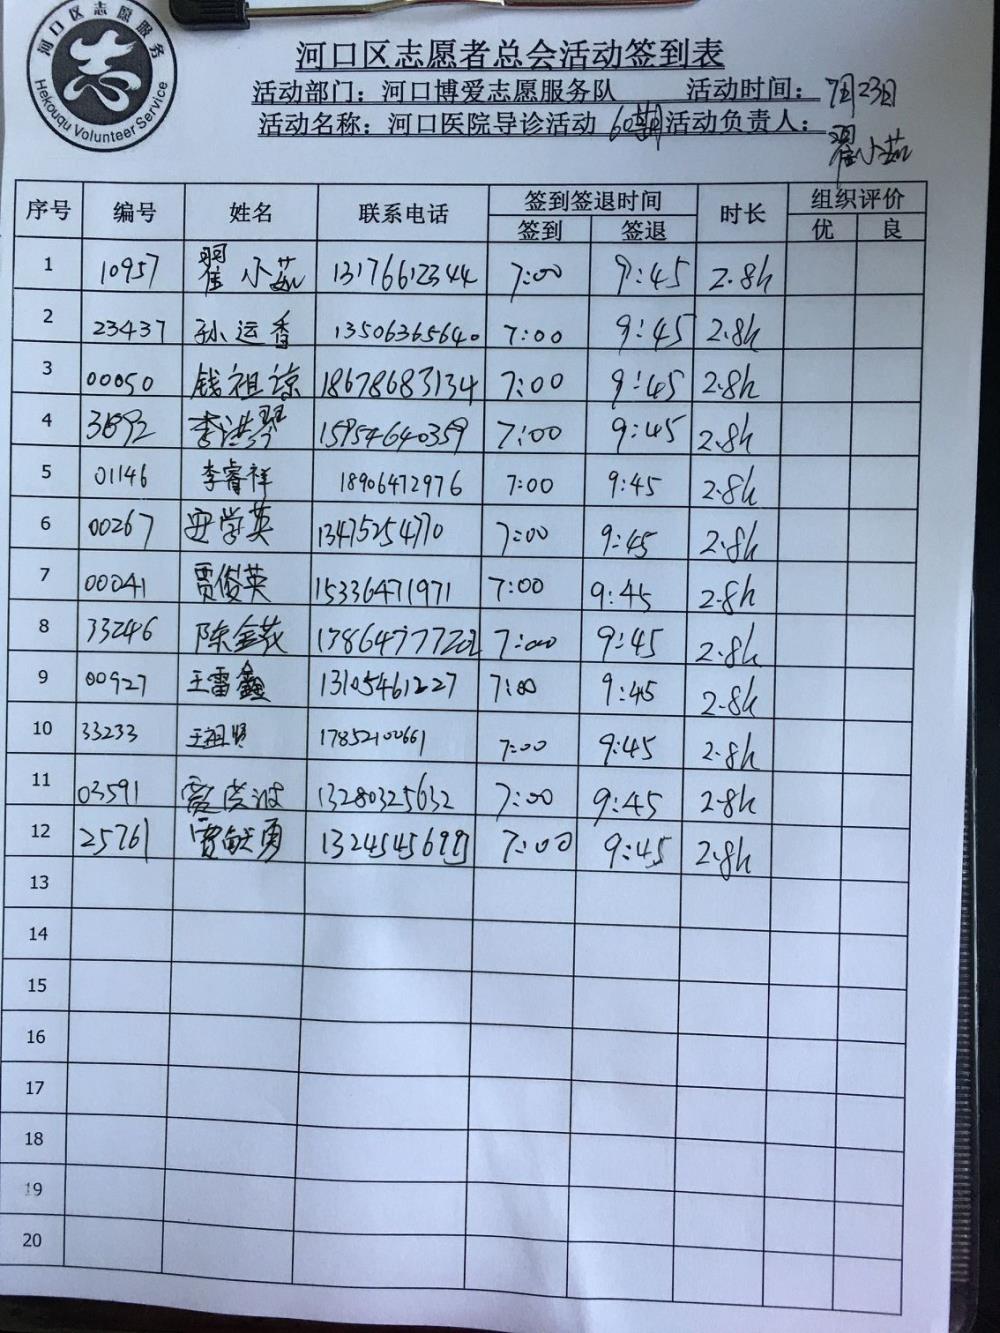 河口区志愿服务
志
Hekouqu Volunteer Service
河口区志愿者总会活动签到表
活动部门：河口博爱志愿服务队 活动时间：7月23日
活动名称：河口医院导诊活动 60期 活动负责人：翟小茹
序号 编号 姓名 联系电话 签到签退时间 时长 组织评价
签到 签退 优 良
1 10957 翟小茹 13176612344 7:00 9:45 2.8h
2 23437 孙运香 13506365640 7:00 9:45 2.8h
3 00050 钱祖谅 18678683134 7:00 9:45 2.8h
4 31892 李洪琴 15954640359 7:00 9:45 2.8h
5 01146 李睿祥 18906472976 7:00 9:45 2.8h
6 00267 安学英 13475254770 7:00 9:45 2.8h
7 00041 贾俊英 15336471971 7:00 9:45 2.8h
8 33246 陈金花 17864777202 7:00 9:45 2.8h
9 00927 王雷鑫 13105461227 7:00 9:45 2.8h
10 33233 王祖贤 17852100661 7:00 9:45 2.8h
11 03591 13280325632 7:00 9:45 2.8h
12 25761 贾献勇 7:00 9:45 2.8h
13
14
15
16
17
18
19
20